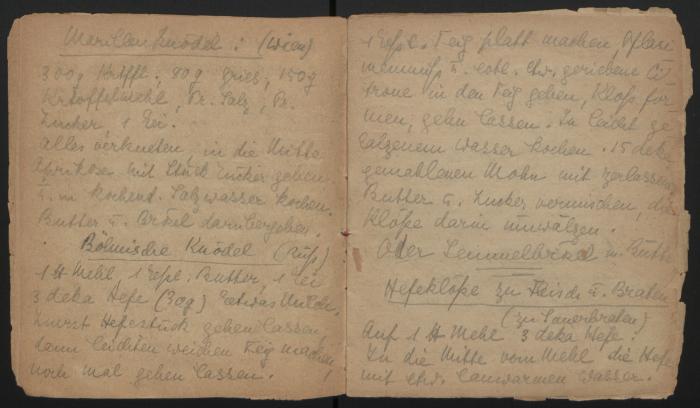 Marillenknödel: (Wien)
300g Krtffl., 80g Gries, 150g
Krtoffelmehl, Pr. Salz, Pr.
Zucker, 1 Ei.
Alles verkneten, in die Mitte
Aprikose mit Stück Zucker geben
u. in kochend. Salzwasser kochen.
Butter u. Brösel darübergeben.
Böhmische Knödel
1 ℔ Mehl, 1 Essl. Butter, 1 Ei
3 deka Hefe (30g) etwas Milch.
Zuerst Hefestück gehen lassen,
dann leichten weichen Teig machen,
noch mal gehen lassen.
1 Essl. Teig platt machen, Pflau
menmus u. etw. geriebene Ci
trone in den Teig geben, Kloß for
men, gehn lassen. In leicht ge
salzenem Wasser kochen. 15 deka
gemahlenen Mohn mit zerlassener
Butter u. Zucker vermischen, die
Klöße darin umwälzen.
Oder Semmelbrösel u. Butter
Hefeklöße zu Fleisch u. Braten
(zu Sauerbraten)
Auf 1 ℔ Mehl 3 deka Hefe.
In die Mitte vom Mehl die Hefe
mit etw. lauwarmen Wasser.